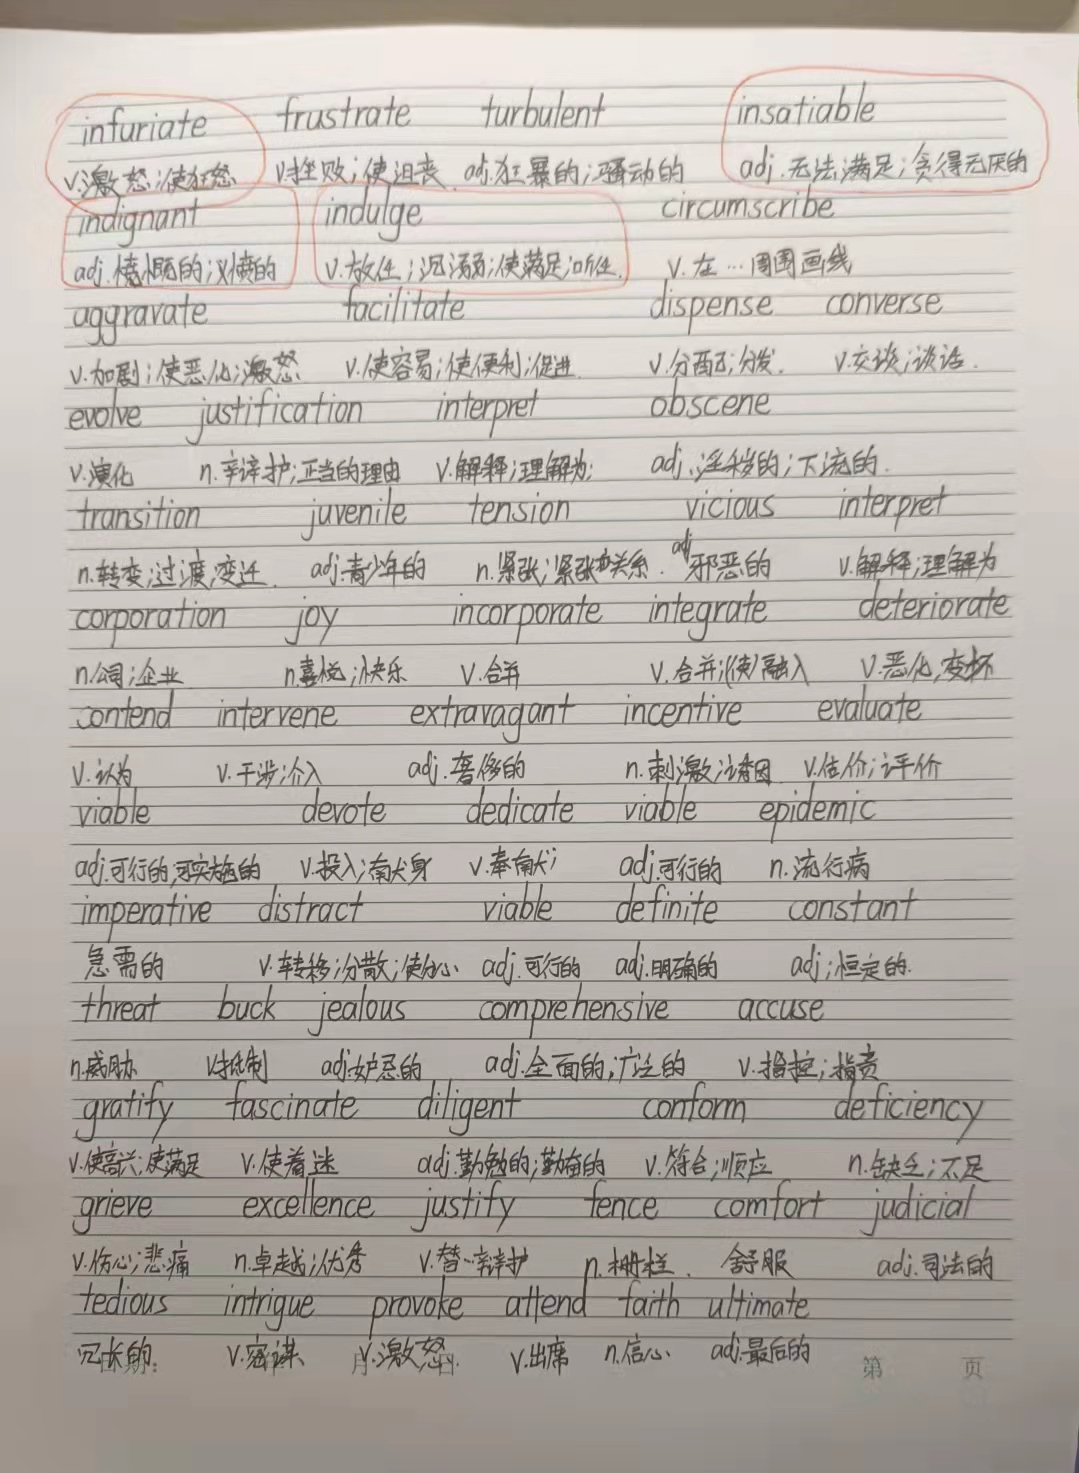 infuriate frustrate turbulent insatiable
v.激怒;使狂怒 v.挫败;使沮丧 adj.狂暴的;骚动的 adj.无法满足;贪得无厌的
indignant indulge circumscribe
adj.愤慨的;义愤的 v.放任;沉溺;使满足;听任 v.在…周围画线
aggravate facilitate dispense converse
v.加剧;使恶化;激怒 v.使容易;使便利;促进 v.分配;分发. v.交谈;谈话.
evolve justification interpret obscene
v.演化 n.辩护;正当的理由 v.解释;理解为; adj.淫秽的;下流的.
transition juvenile tension vicious interpret
n.转变;过渡;变迁 adj.青少年的 n.紧张;紧张关系. adj邪恶的 v.解释;理解为
corporation joy incorporate integrate deteriorate
n.公司;企业 n.喜悦;快乐 v.合并 v.合并;(使)融入 v.恶化,变坏
contend intervene extravagant incentive evaluate
v.认为 v.干涉;介入 adj.奢侈的 n.刺激;诱因 v.估价;评价
viable devote dedicate viable epidemic
adj.可行的;可实施的 v.投入;献身 v.奉献; adj.可行的 n.流行病
imperative distract viable definite constant
急需的 v.转移;分散;使分心 adj.可行的 adj.明确的 adj;恒定的.
threat buck jealous comprehensive accuse
n.威胁 v.抵制 adj.妒忌的 adj.全面的;广泛的 v.指控;指责
gratify fascinate diligent conform deficiency
v.使高兴;使满足 v.使着迷 adj.勤勉的;勤奋的 v.符合;顺应 n.缺乏;不足
grieve excellence justify fence comfort judicial
v.伤心;悲痛 n.卓越;优秀 v.替…辩护 n.栅栏. 舒服 adj.司法的
tedious intrigue provoke attend faith ultimate
冗长的 v.密谋 v.激怒. v.出席 n.信心 adj.最后的
第 页